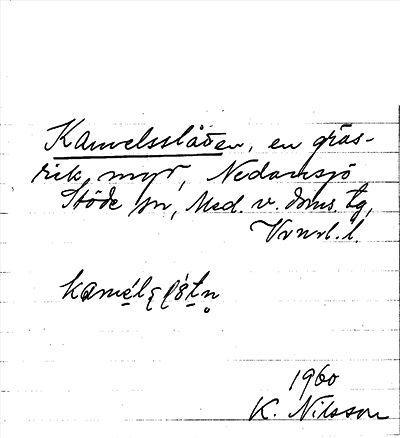 Kamelsslåden, en gräs-
rik myr, Nedansjö
Stöde sn, Med. v. doms. tg,
Vnrl. l.
kamé̱l
1960
K. Nilsson